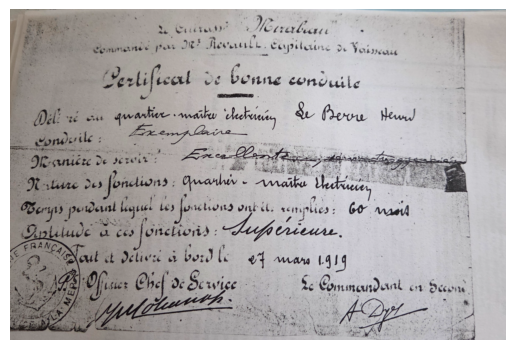 Le Cuirassé Mirabeau
Commandé par Mr Revault, Capitaine de Vaisseau
Certificat de bonne conduite
Délivré au quartier-maître électricien Le Berre Henri
Conduite : Exemplaire
Manière de servir : Excellente
Nature des fonctions : Quartier-maître électricien
Temps pendant lequel les fonctions ont été remplies : 60 mois
Aptitude à ces fonctions : Supérieure.
Fait et délivré à bord le 27 mars 1919
L'Officier Chef de Service Le Commandant en Second
FRANÇAISE